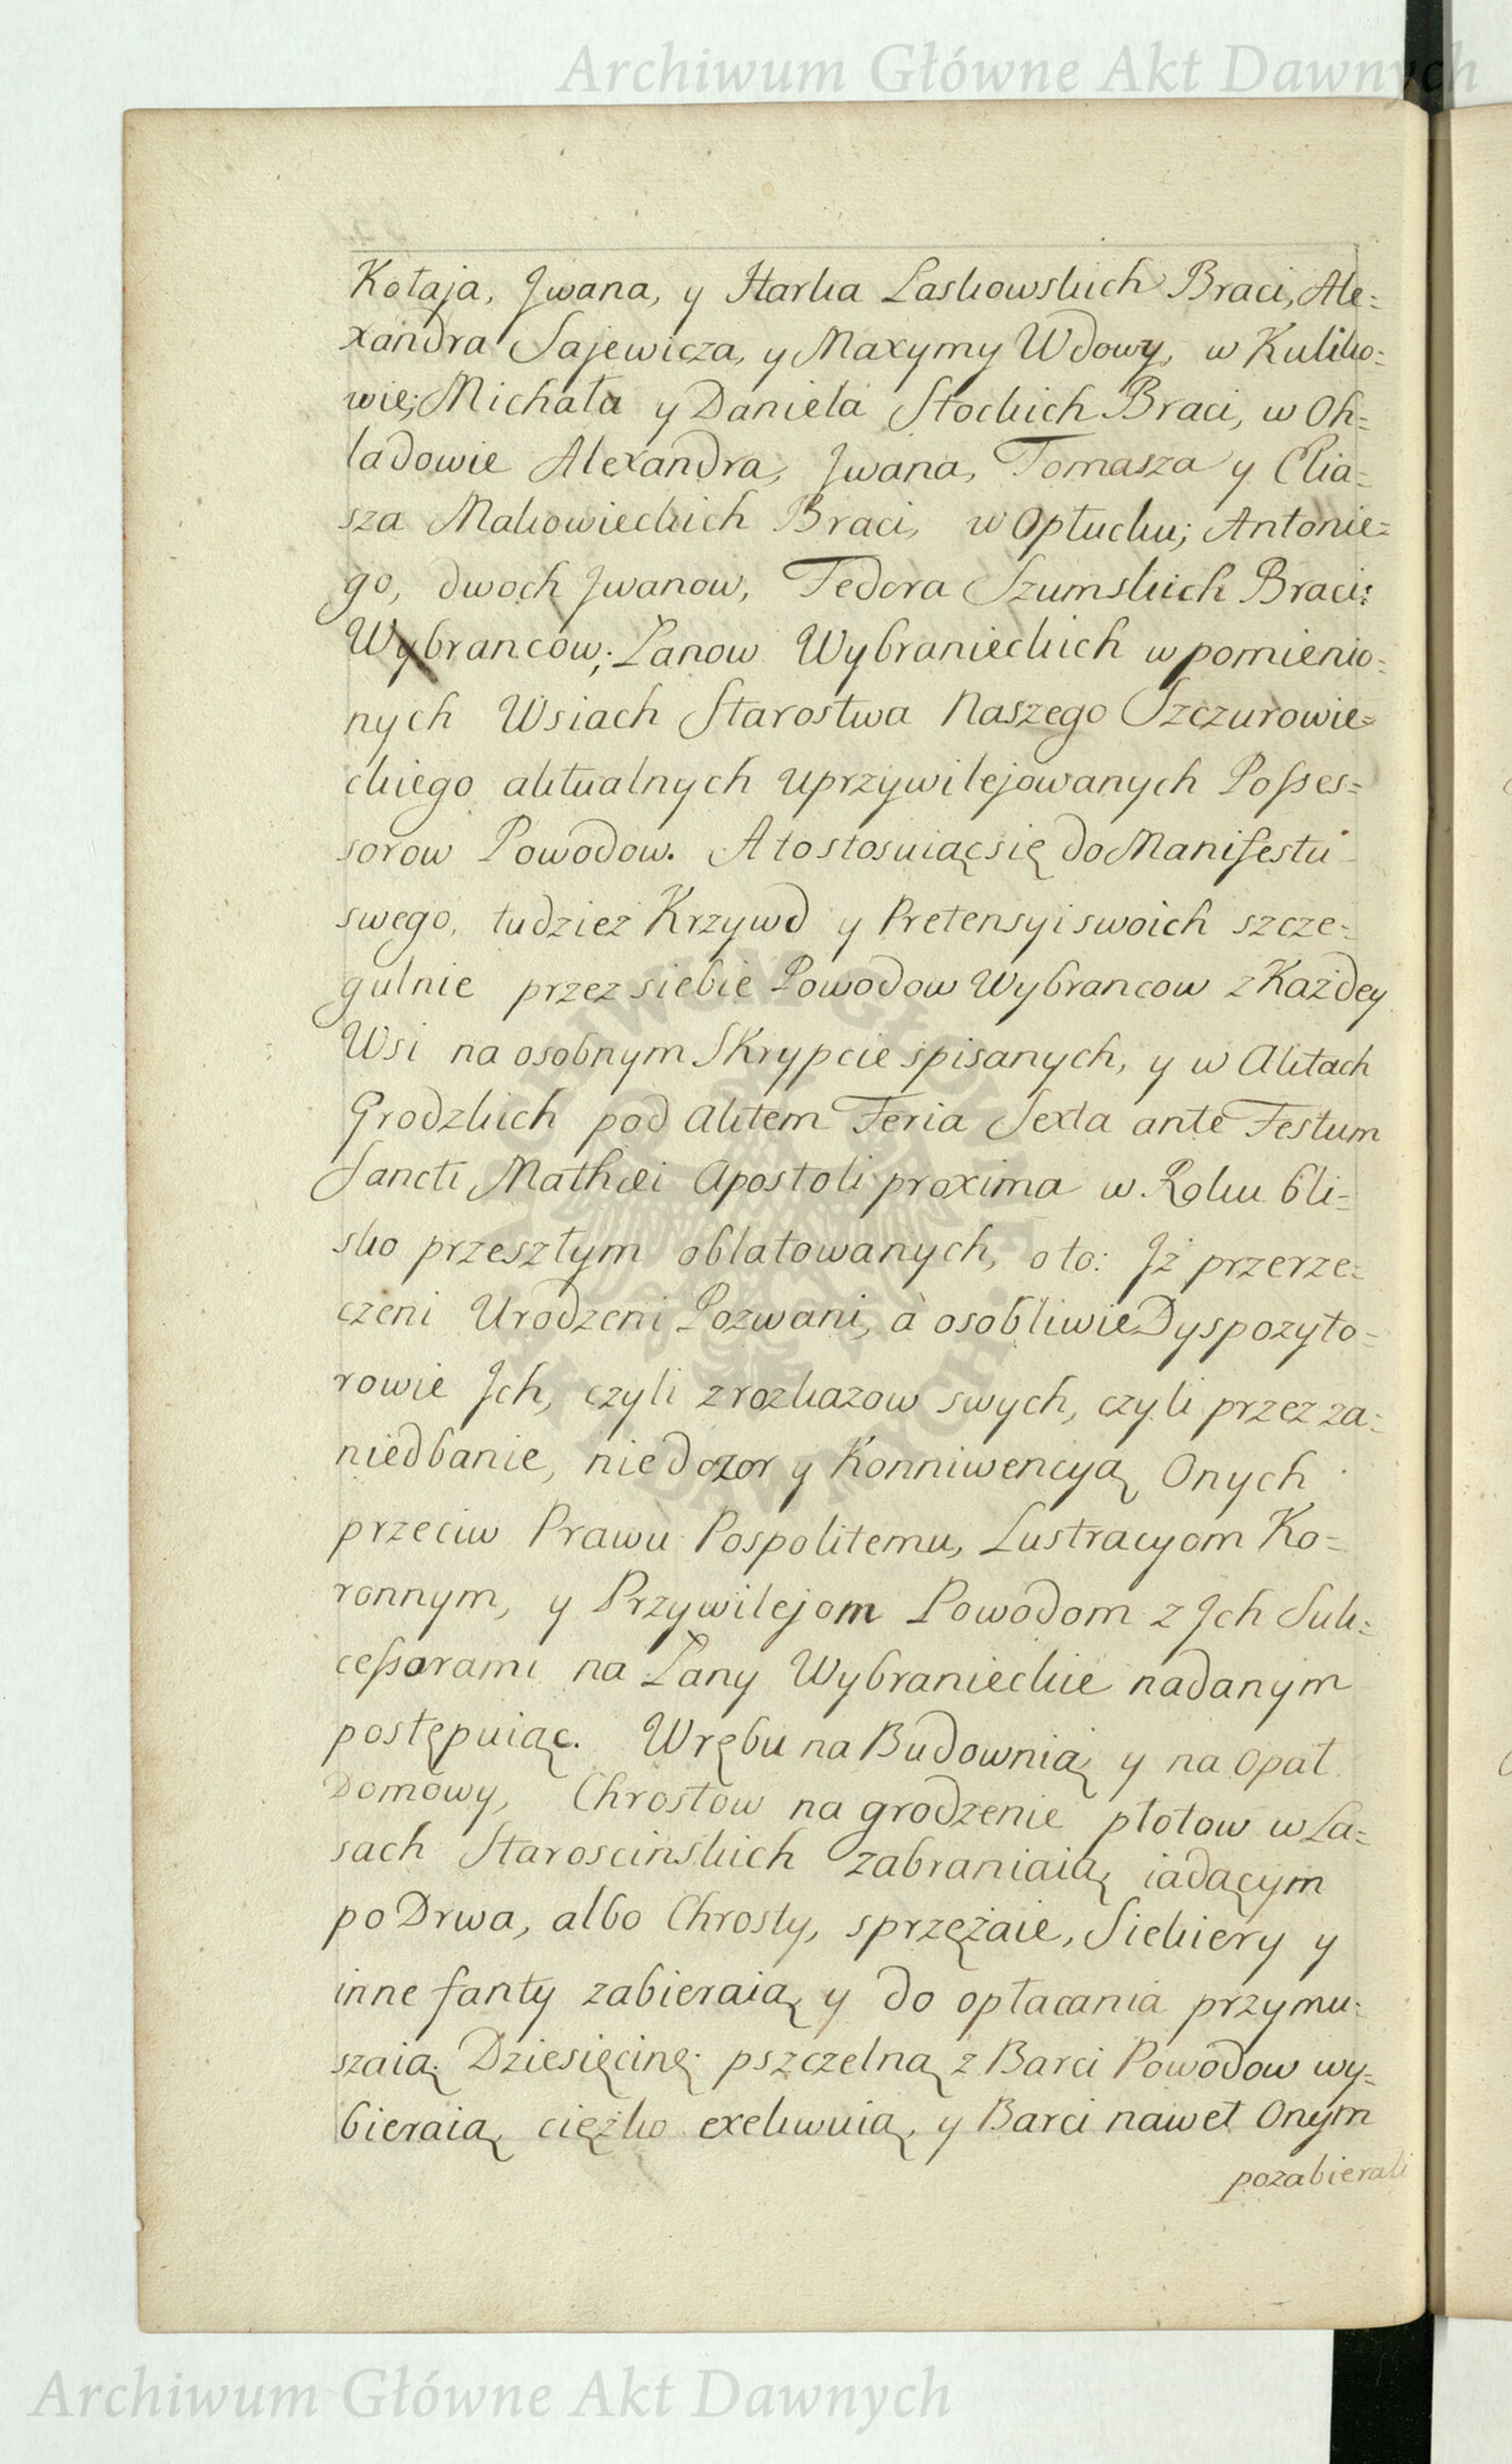 Archiwum Główne Akt Dawnych
Kołaja, Jwana, y Harka Laskowskich Braci, Ale=
xandra Sajewicza, y Maxymy Wdowy, w Kuliko=
wie; Michała y Daniela Stockich Braci, w Oh=
ladowie Alexandra, Jwana, Tomasza y Elia=
sza Makowieckich Braci, w Opłucku; Antonie=
go, dwoch Jwanow, Fedora Szumskich Braci:
Wybrancow; Łanow Wybranieckich w pomienio=
nych Wsiach Starostwa Naszego Szczurowie=
ckiego aktualnych uprzywilejowanych Posses=
sorow Powodow. A to stosuiąc się do Manifestu
swego, tudzież Krzywd y Pretensyi swoich szcze=
gulnie przez siebie Powodow Wybrancow z Każdey
Wsi na osobnym Skrypcie spisanych, y w Aktach
Grodzkich pod Aktem Feria Sexta ante Festum
Sancti Mathæi Apostoli proxima w Roku bli=
sko przeszłym oblatowanych, o to: Jż przerze=
czeni Urodzeni Pozwani, à osobliwie Dyspozyto=
rowie Jch, czyli z rozkazow swych, czyli przez za=
niedbanie, niedozor y Konniwencyą Onych
przeciw Prawu Pospolitemu, Lustracyom Ko=
ronnym, y Przywilejom Powodom z Jch Suk=
cessorami na Łany Wybranieckie nadanym
postępuiąc. Wrębu na Budownią y na Opał
Domowy, Chrostow na grodzenie płotow w La=
sach Staroscinskich zabraniaią iadącym
po Drwa, albo Chrosty, sprzężaie, Siekiery y
inne fanty zabieraią y do opłacania przymu=
szaią. Dziesięcinę pszczelną z Barci Powodow wy=
bieraią ciężko exekwuią, y Barci nawet Onym
pozabierali
Archiwum Główne Akt Dawnych